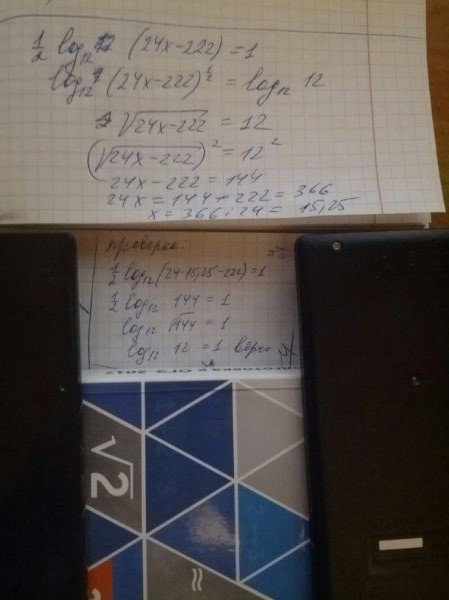 1/2 log₁₂ (24x-222) = 1
log₁₂ (24x-222)^½ = log₁₂ 12
√24x-222 = 12
(√24x-222)² = 12²
24x-222 = 144
24x = 144+222 = 366
x = 366 : 24 = 15,25
проверка:
1/2 log₁₂ (24·15,25-222) = 1
1/2 log₁₂ 144 = 1
log₁₂ √144 = 1
log₁₂ 12 = 1
К ОГЭ
√2
≈